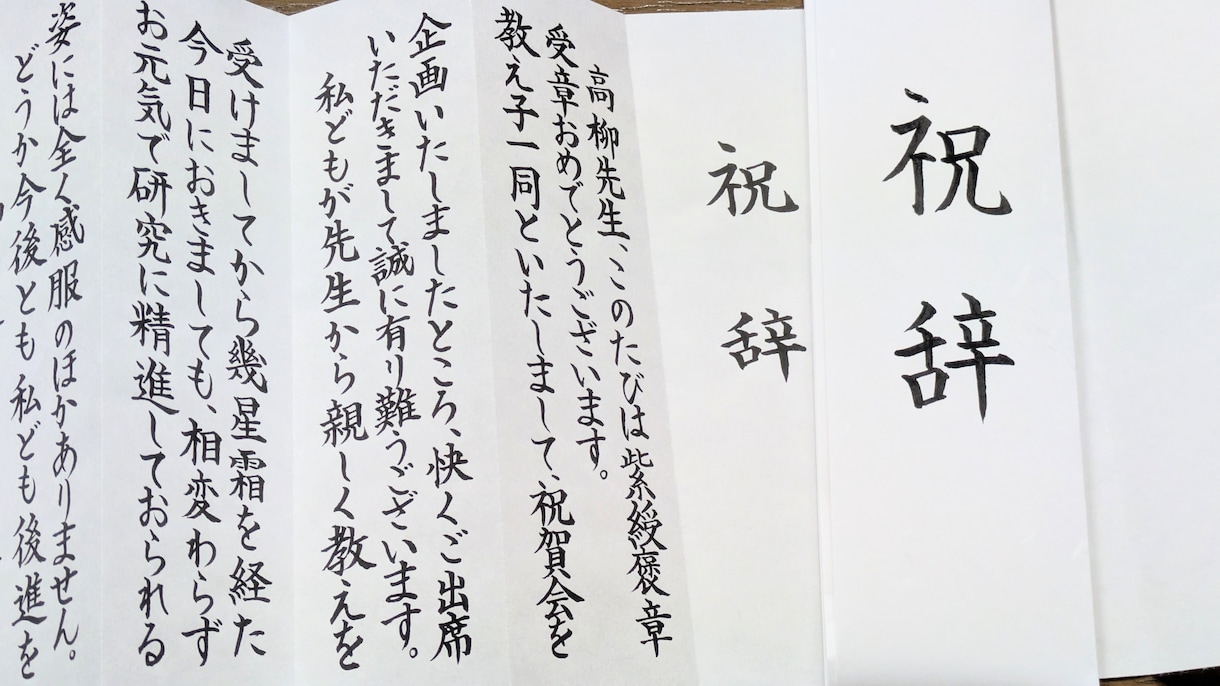 祝辞
祝辞
高柳先生、このたびは紫綬褒章
受章おめでとうございます。
教え子一同といたしまして、祝賀会を
企画いたしましたところ、快くご出席
いただきまして誠に有り難うございます。
私どもが先生から親しく教えを
受けましてから幾星霜を経た
今日におきましても、相変わらず
お元気で研究に精進しておられる
姿には全く感服のほかありません。
どうか今後とも私ども後進を